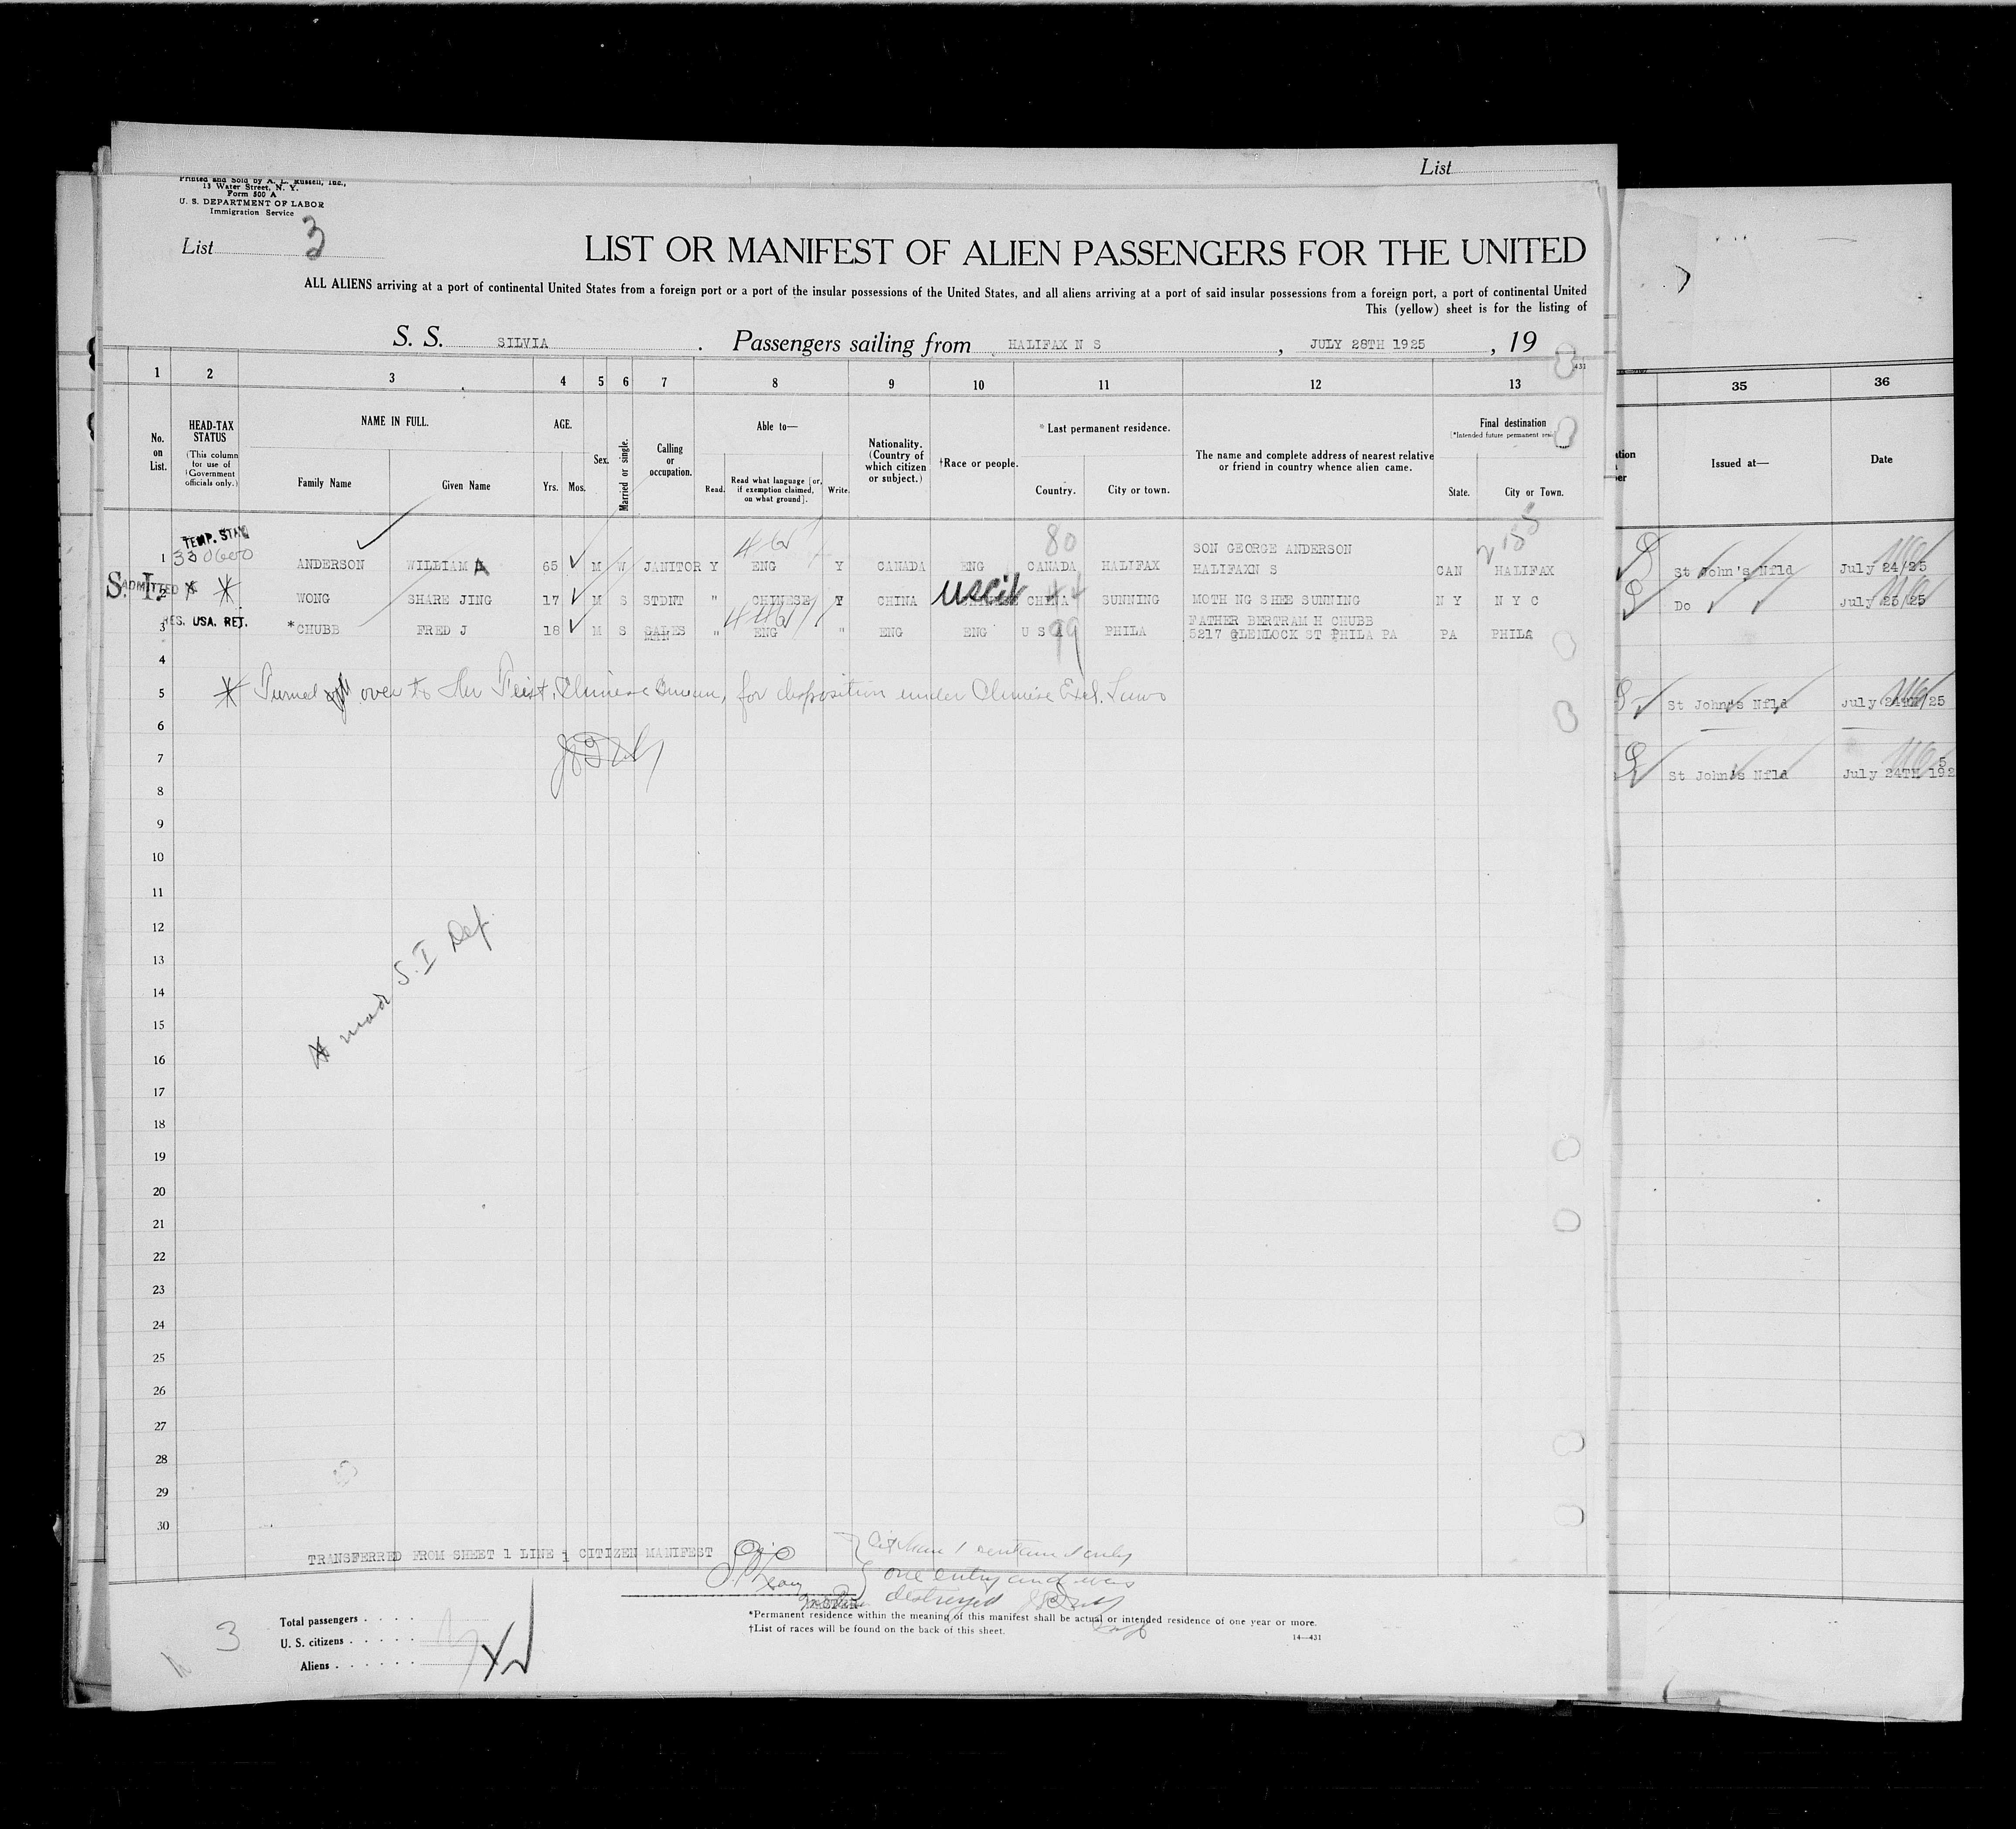 List
Printed and Sold by A. L. Russell, Inc.,
13 Water Street, N. Y.
Form 500 A
U. S. DEPARTMENT OF LABOR
Immigration Service
List 3
LIST OR MANIFEST OF ALIEN PASSENGERS FOR THE UNITED
ALL ALIENS arriving at a port of continental United States from a foreign port or a port of the insular possessions of the United States, and all aliens arriving at a port of said insular possessions from a foreign port, a port of continental United
This (yellow) sheet is for the listing of
S. S. SILVIA . Passengers sailing from HALIFAX N S , JULY 28TH 1925 , 19
1 2 3 4 5 6 7 8 9 10 11 12 13 35 36
No. on List.
HEAD-TAX STATUS
(This column for use of Government officials only.)
NAME IN FULL.
Family Name Given Name
AGE.
Yrs. Mos.
Sex.
Married or single.
Calling or occupation.
Able to—
Read. Read what language [or, if exemption claimed, on what ground]. Write.
Nationality. (Country of which citizen or subject.)
†Race or people.
*Last permanent residence.
Country. City or town.
The name and complete address of nearest relative or friend in country whence alien came.
Final destination
(*Intended future permanent
State. City or Town.
Issued at—
Date
TEMP. STAY
1 ANDERSON WILLIAM A 65 M W JANITOR Y ENG Y CANADA ENG CANADA 80 HALIFAX SON GEORGE ANDERSON HALIFAXN S CAN HALIFAX
St John's Nfld July 24/25
S. I. ADMITTED
2 WONG SHARE JING 17 M S STDNT " CHINESE Y CHINA uscit CHINA SUNNING MOTH NG SHEE SUNNING N Y N Y C
Do July 25/25
RES. USA. RET.
3 *CHUBB FRED J 18 M S SALES MAN " ENG " ENG ENG U S A 99 PHILA FATHER BERTRAM H CHUBB 5217 GLENLOCK ST PHILA PA PA PHILA
4
5 Turned over to Chinese Bureau, for disposition under Chinese Excl. Laws
St John's Nfld July 24TH/25
6
7
St John's Nfld July 24TH 1925
8
9
10
11
12
13
14
15
16
17
18
19
20
21
22
23
24
25
26
27
28
29
30
S. I Def.
TRANSFERRED FROM SHEET 1 LINE 1 CITIZEN MANIFEST
one entry and was
destroyed
MASTER
*Permanent residence within the meaning of this manifest shall be actual or intended residence of one year or more.
†List of races will be found on the back of this sheet.
14—431
3
Total passengers
U. S. citizens
Aliens